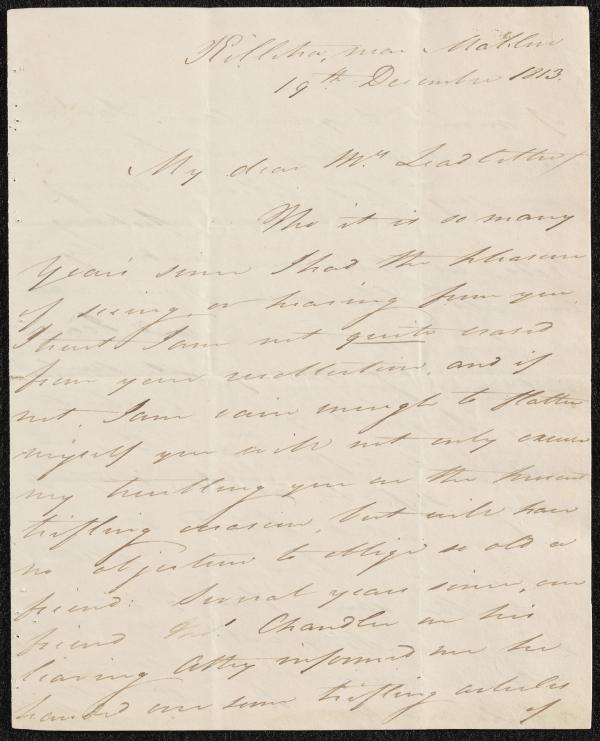 near
19th December 1813.
My dear Mrs Leadbetter
Tho it is so many
Years since I had the pleasure
of seeing, or hearing from you,
I trust I am not quite erased
from your recollection, and if
not, I am vain enough to flatter
myself you will not only excuse
my troubling you on the present
trifling occasion, but will have
no objection to oblige so old a
friend: Several years since, our
friend Chandler on his
leaving Athy informed me he
handed over some trifling articles
of